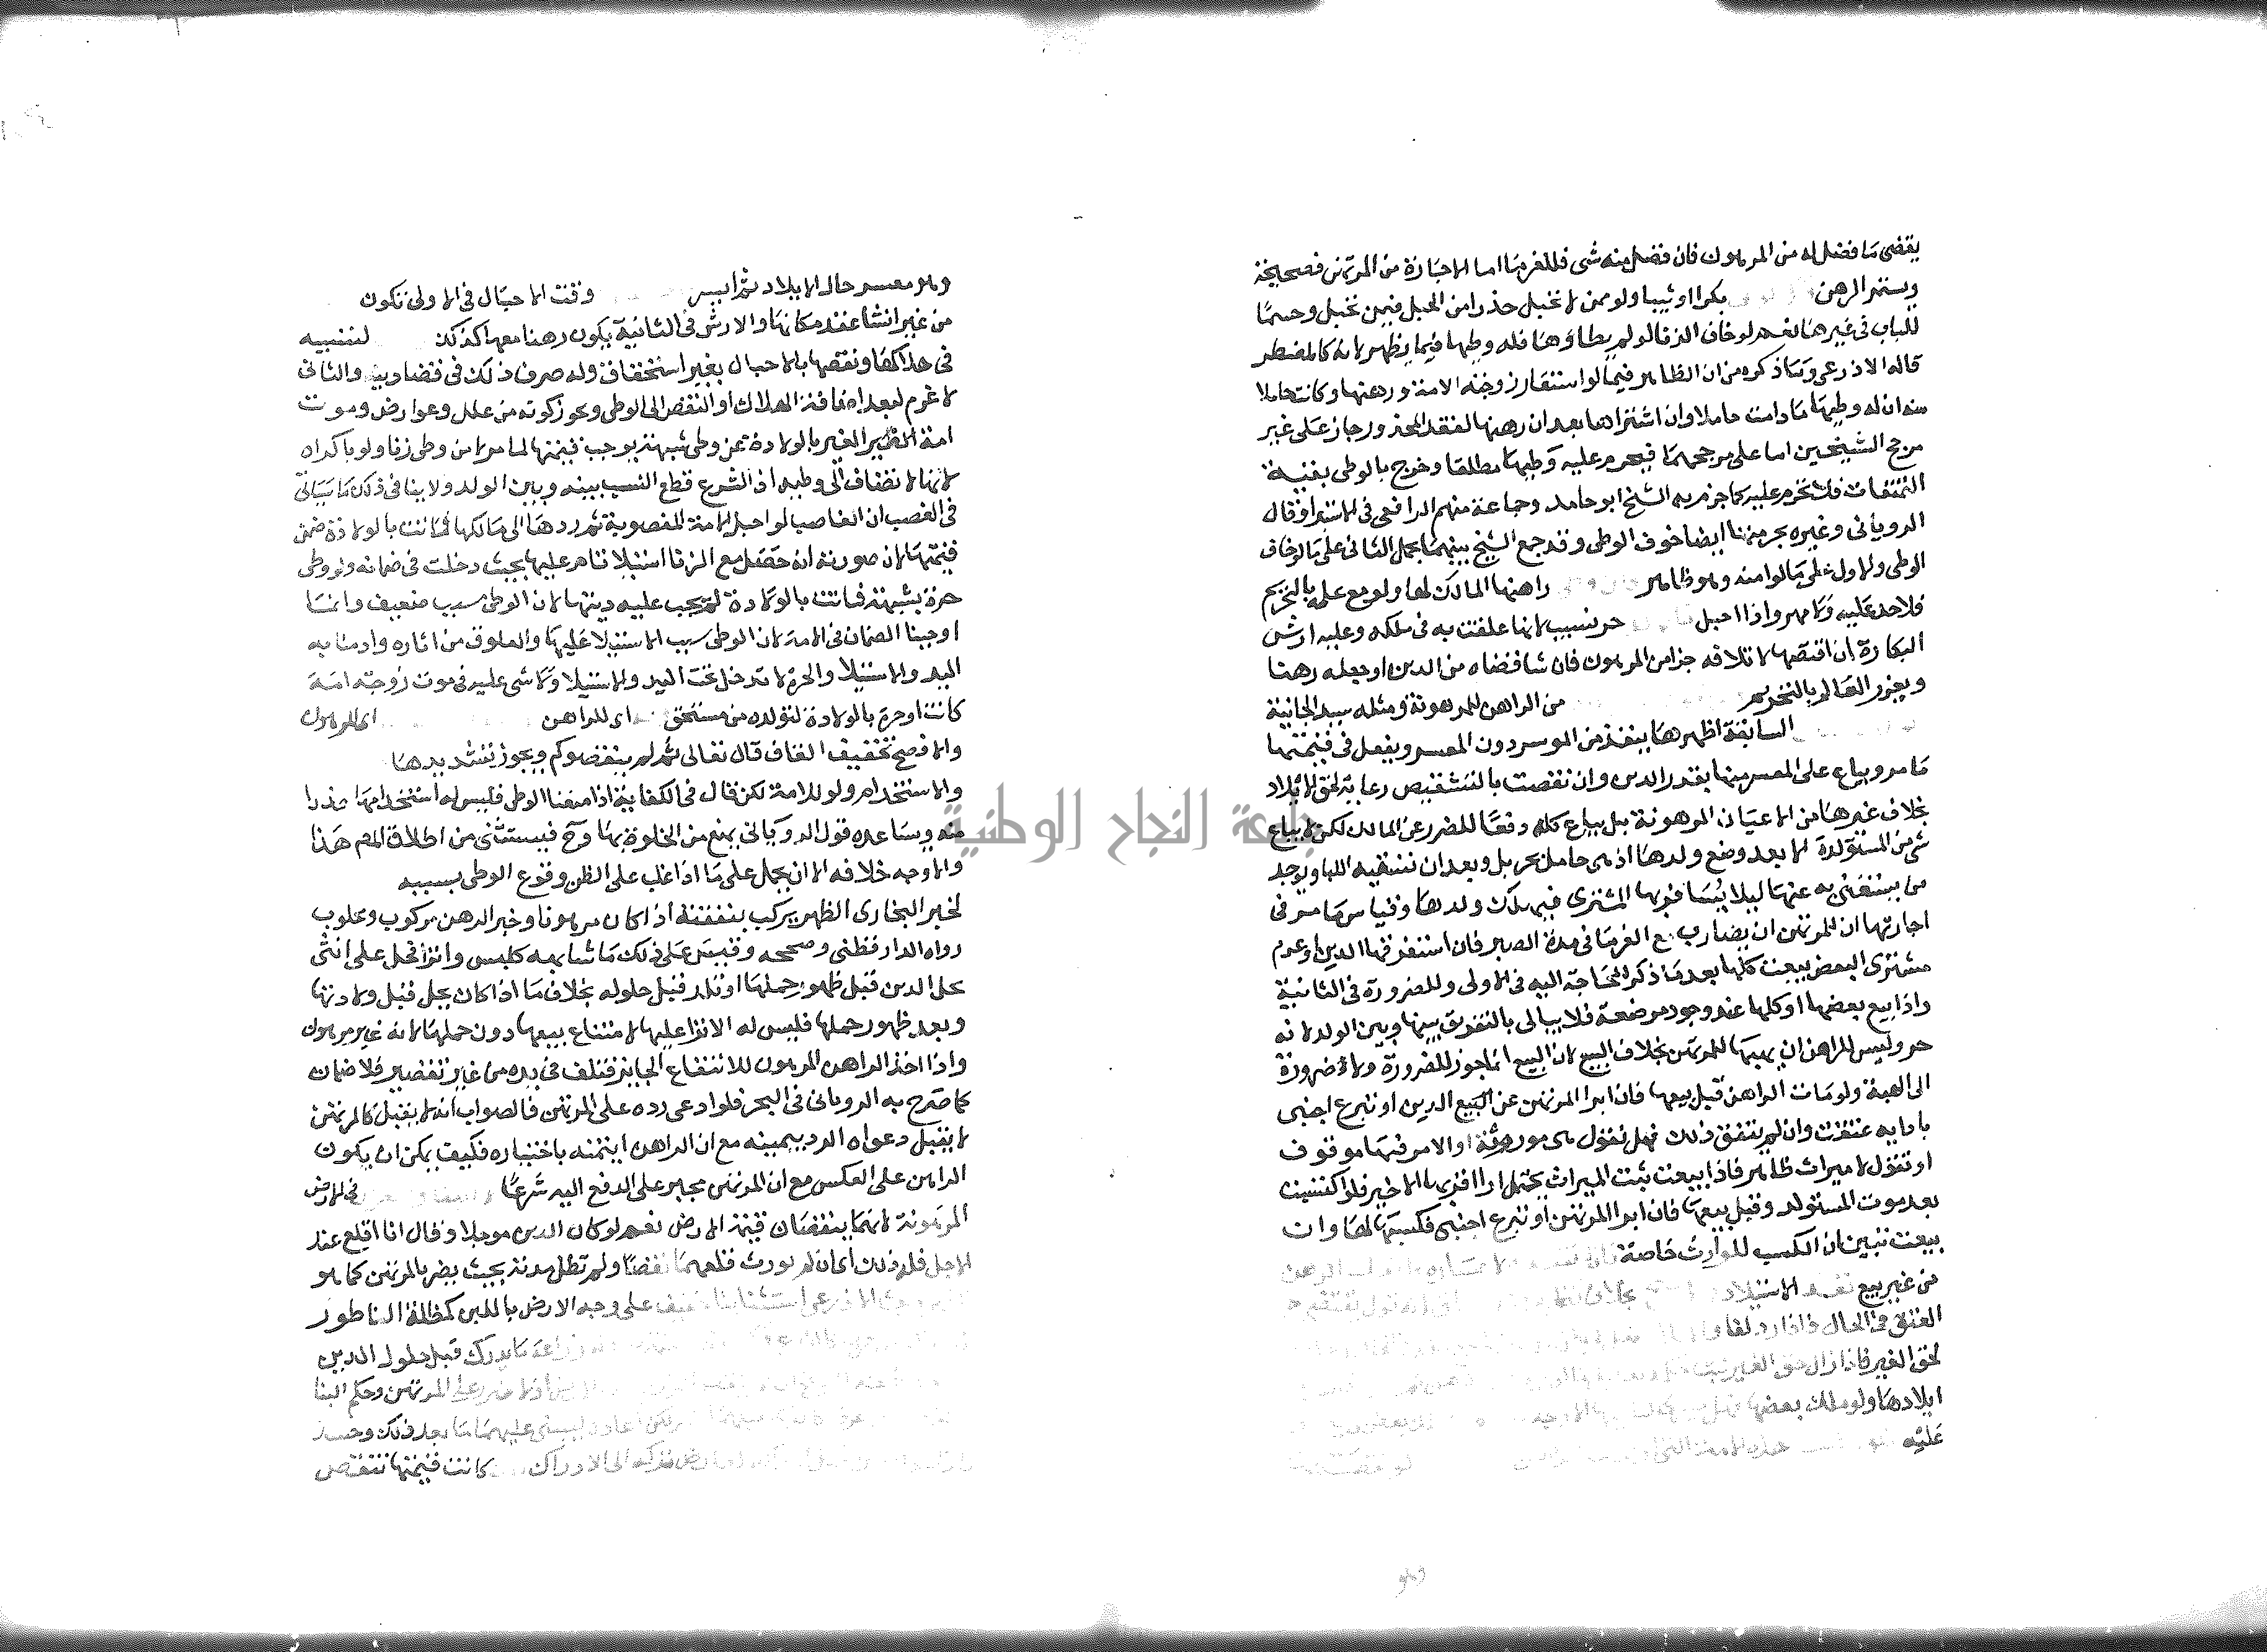 يقضى ما فضل له من المرهون فان فضل منه شى فللغرما اما الاجازة من المرتهن فصحيحة
ويستمر الرهن بكرا او ثيبا ولو ممن لا تحبل حذرا من الحبل فيمن تحبل وحسما
للباب فى غيرها نعم لو خاف الزنا لو لم يطاوها فله وطيها فيما يظهر لانه كالمضطر
قاله الاذرعى وما ذكره من ان الظاهر فيما لو استعار زوجته الامة ورهنها وكانت حاملا
منه ان له وطيها ما دامت حاملا وان اشتراها بعد ان رهنها لفقد المحذور جاز على غير
مرجح الشيخين اما على مرجحهما فيحرم عليه وطيها مطلقا وخرج بالوطى بقية
التمتعات فلا تحرم عليه كما جزم به الشيخ ابو حامد وجماعة منهم الرافعى فى الاستبرا وقال
الرويانى وغيره بحرمتها ايضا خوف الوطى وقد جمع الشيخ بينهما بحمل الثانى على ما لو خاف
الوطى والاول على ما لو امنه وهو ظاهر راهنها المالك لها ولو مع علمه بالتحريم
فلا حد عليه ولا مهر واذا احبل حر نسيب لانها علقت به فى ملكه وعليه ارش
البكارة ان افتضها لاتلافه جزا من المرهون فان شا قضاه من الدين او جعله رهنا
ويعزر العالم بالتحريم من الراهن للمرهونة ومثله سيد الجانية
السابقة اظهرها ينفذ من الموسر دون المعسر ويفعل فى قيمتها
ما مر ويباع على المعسر منها بقدر الدين وان نقصت بالتشقيص رعاية لحق الايلاد
بخلاف غيرها من الاعيان المرهونة بل يباع كله دفعا للضرر عن المالك لكن لا يباع
شى من المستولدة الا بعد وضع ولدها اذ هى حامل بحر بل وبعد ان تسقيه اللبا ويوجد
من يستغنى به عنها ليلا يسافر بها المشترى فيهلك ولدها وقياس ما مر فى
اجارتها ان للمرتهن ان يضارب مع الغرما فى مدة الصبر فان استغرقها الدين او عدم
مشترى البعض بيعت كلها بعد ما ذكر للحاجة اليه فى الاولى وللضرورة فى الثانية
واذا بيع بعضها او كلها عند وجود مرضعة فلا يبالى بالتفريق بينها وبين الولد لانه
حر وليس للراهن ان يهبها للمرتهن بخلاف البيع لان البيع انما جوز للضرورة ولا ضرورة
الى الهبة ولو مات الراهن قبل بيعها فان ابرا المرتهن عن البيع الدين او تبرع اجنبى
بادايه عتقت وان لم يتفق ذلك فهل نقول هى موروثة او الامر فيها موقوف
او نقول لا ميراث ظاهر فاذا بيعت ثبت الميراث يحتمل ارا اقربها الاخير فلو اكتسبت
بعد موت المستولد وقبل بيعها فان ابرا المرتهن او تبرع اجنبى فكسبها لها وان
بيعت تبين ان الكسب للوارث خاصة
من غير بيع نفذ الاستيلاد
العتق فى الحال فاذا رد لغا
لحق الغير فاذا زال حق الغير ثبت
ايلادها ولو ملك بعضها
عليه هذه الامة التى
وهو
وهو معسر حال الايلاد ثم ايسر وقت الاحبال فى الاولى تكون
من غير انشا عقد مكانها والارش فى الثانية يكون رهنا معها كذلك لتسببه
فى هلاكها ونقصها بالاحبال بغير استحقاق وله صرف ذلك فى قضا دينه والثانى
لا غرم لبعد اضافة الهلاك او النقص الى الوطى ويجوز كونه من علل وعوارض وموت
امة الغير بالولادة عن وطى شبهة يوجب قيمتها لما مر لا من وطى زنا ولو باكراه
لانها لا تضاف الى وطيه اذ الشرع قطع النسب بينه وبين الولد ولا ينافى ذلك ما سياتى
فى الغصب ان الغاصب لو احبل الامة المغصوبة ثم ردها الى مالكها فماتت بالولادة ضمن
قيمتها لان صورته انه حصل مع الزنا استيلا تام عليها بحيث دخلت فى ضمانه ولو وطى
حرة بشبهة فماتت بالولادة لم يجب عليه ديتها لان الوطى سبب ضعيف وانما
اوجبنا الضمان فى الامة لان الوطى سبب الاستيلا عليها والعلوق من اثاره وادمنا به
اليد والاستيلا والحرة لا تدخل تحت اليد والاستيلا ولا شى عليه فى موت زوجته امة
كانت او حرة بالولادة لتولده من مستحق اى للراهن اى المرهون
والافصح تخفيف القاف قال تعالى ثم لم ينقصوكم ويجوز تشديدها
والاستخدام ولو للامة لكن قال فى الكفاية اذا منعنا الوطى فليس له استخدامها حذرا
منه ويساعده قول الرويانى يمنع من الخلوة بها وح فيستثنى من اطلاق المص هذا
والاوجه خلافه الا ان يحمل على ما اذا غلب على الظن وقوع الوطى بسببه
لخبر البخارى الظهر يركب بنفقته اذا كان مرهونا وخبر الرهن مركوب ومحلوب
رواه الدارقطنى وصححه وقيس على ذلك ما شابهه كلبس وانزا فحل على انثى
يحل الدين قبل ظهور حملها او تلد قبل حلوله بخلاف ما اذا كان يحل قبل ولادتها
وبعد ظهور حملها فليس له الانزا عليها لامتناع بيعها دون حملها لانه غير مرهون
واذا اخذ الراهن المرهون للانتفاع الجايز فتلف فى يده من غير تقصير فلا ضمان
كما صرح به الرويانى فى البحر فلو ادعى رده على المرتهن فالصواب انه لا يقبل كالمرتهن
لا يقبل دعواه الرد بيمينه مع ان الراهن ايتمنه باختياره فكيف يمكن ان يكون
الراهن على العكس مع ان المرتهن يجبر على الدفع اليه شرعا فى الارض
المرهونة لانهما ينقصان قيمة الارض نعم لو كان الدين موجلا وقال انا اقلع عند
الاجل فله ذلك اى ان لم يورث قلعهما نقصا ولم تطل مدته بحيث يضر بالمرتهن كما هو
على وجه الارض باللبن كمظلة الناطور
زراعة ما يدرك قبل حلول الدين
اذ لا ضرر على المرتهن وحكم البنا
عليهما ما بعد ذلك وحيث
تركه الى الادراك كانت قيمتها تنقص
جامعة النجاح الوطنية